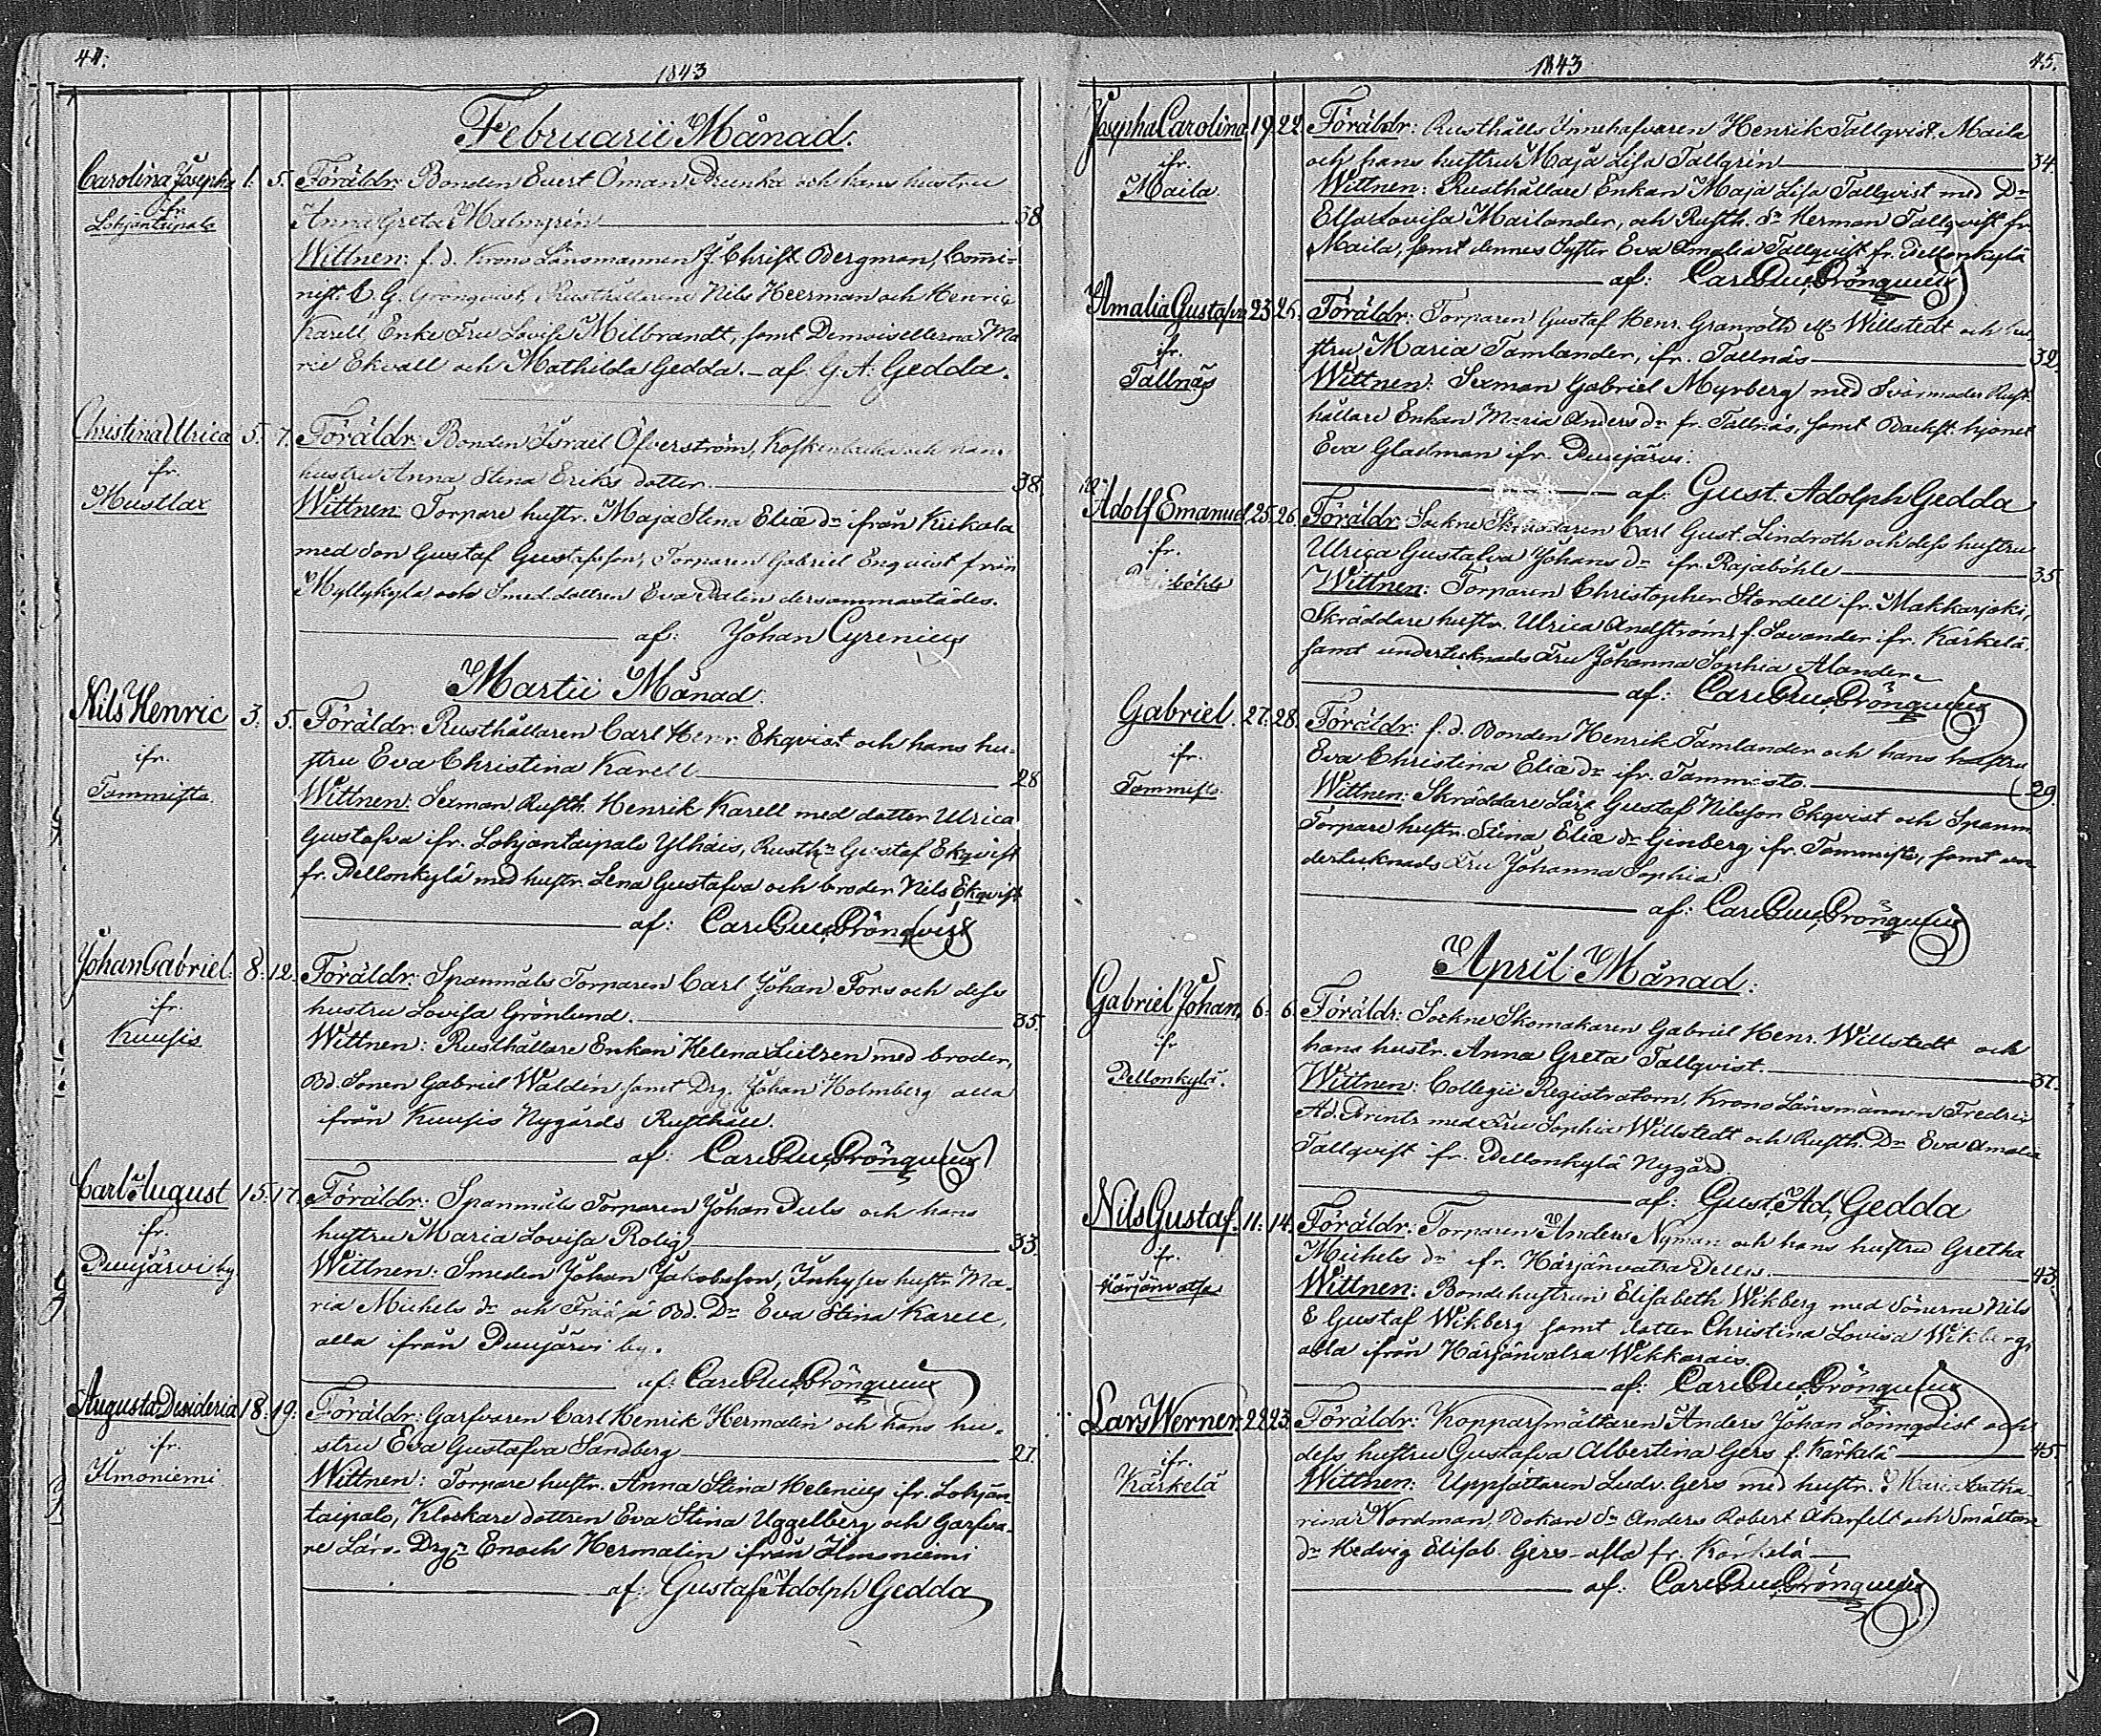 44:
1843
Februarii Månad.
Carolina Josepha 1. 5. Föräldr: Bonden Evert Öman Prunka och hans hustru
ifr.
Lohjäntaipale
Anna Greta Malmgrén 38
Wittnen: f. d. Krono Länsmannen J. Christ. Bergman, Commi-
nist. C. G. Grönqvist, Rusthållarne Nils Heerman och Henric
Karell, Enke Fru Lovisa Milbrandt, samt Demoisellerna Ma
rie Ekvall och Mathilda Gedda. – af G. A: Gedda.
Christina Ulrica 5. 7. Föräldr: Bonden Israël Öfverström, och hans
ifr.
Mustlax
hustru Anna Stina Eriks dotter. 38.
Wittnen: Torpare hustr. Maja Stina Eliæ dr ifrån Kirkala
med Son Gustaf Gustafsson, Torparen Gabriel Enqvist från
Myllykylä och Smed. dottren Eva Dalin dersammastädes.
af: Johan Cyrenius
Martii Månad.
Nils Henric 3. 5. Föräldr: Rusthållaren Carl Henr. Ekqvist och hans hu-
ifr.
Tammisto.
stru Eva Christina Karell 28
Wittnen: Sexman Rusth. Henrik Karell med dotter Ulrica
Gustafva ifr. Lohjantaipale Ylhäis, Rusthn Gustaf Ekqvist
fr. Pellonkylä med hustr. Lena Gustafva och broder Nils Ekqvist
af: Carl Gust. Grönqvist
Johan Gabriel. 8. 12. Föräldr: Spanmåls Torparen Carl Johan Fors och dess
ifr.
Kuusis
hustru Lovisa Grönlund. 35.
Wittnen: Rusthållare Enkan Helena Lietzen med broder,
Bd. Sonen Gabriel Waldén samt Drg. Johan Holmberg alla
ifrån Kuusis Nygårds Rusthåll.
af: Carl Gust. Grönqvist
Carl August 15. 17. Föräldr: Spanmåls Torparen Johan Puls och hans
ifr.
Puujärvi by
hustru Maria Lovisa Rolig 33.
Wittnen: Smeden Johan Jakobsson, Inhyses hustr. Ma-
ria Michels dr och Bd. Dr Eva Stina Karell,
alla ifrån Puujärvi by.
af: Carl Gust. Grönqvist
Augusta Desideria 18. 19. Föräldr: Garfvaren Carl Henrik Hermalin och hans hu-
ifr.
Ilmoniemi
stru Eva Gustafva Sandberg 27.
Wittnen: Torpare hustr. Anna Stina Helenius ifr. Lohjän-
taipale, Klockare dottren Eva Stina Uggelberg och Garfva-
re Lärs. Drgn Enoch Hermalin ifrån Ilmoniemi
af: Gustaf Adolph Gedda
1843
45.
Josepha Carolina 19. 22. Föräldr: Rusthålls Innehafvaren Henrik Tallqvist, Maila
ifr.
Maila.
och hans hustru Maja Lisa Tallgrén 34.
Wittnen: Rusthållare Enkan Maja Lisa Tallqvist med Dr
Elsa Lovisa Mailander, och Rusth. Sn Herman Tallqvist fr.
Maila, samt dennes Syster Eva Amalia Tallqvist fr. Pellonkylä
af: Carl Gust. Grönqvist
Amalia Gustafva 23. 25. Föräldr: Torparen Gustaf Henr. Granroth Willstedt och hu-
ifr.
Tallnäs
stru Maria Tamlander, ifr. Tallnäs 32.
Wittnen: Sexman Gabriel Myrberg med Svärmoder Rust-
hållare Enkan Maria Anders dr fr. Tallnäs, samt Backst. hjonet
Eva Gladman ifr. Puujärvi.
af: Gust. Adolph Gedda
Adolf Emanuel 25. 26. Föräldr: Sockne Skräddaren Carl Gust. Lindroth och dess hustru
ifr.
böhle
Ulrica Gustafva Johans dr ifr. Rajaböhle 35.
Wittnen: Torparen Christopher Stordell ifr. Makkarjoki,
Skräddare hustr. Ulrica Andström f. Savander ifr. Kärkelä,
samt undertecknads Fru Johanna Sophia Alander.
af: Carl Gust. Grönqvist
Gabriel. 27. 28. Föräldr: f. d. Bonden Henrik Tamlander och hans hustru
ifr.
Tammisto.
Eva Christina Eliæ dr ifr. Tammisto. 29.
Wittnen: Skräddare Lärl. Gustaf Nilsson Ekqvist och Spanm.
Torpare hustr. Stina Eliæ dr Ginberg ifr. Tammisto, samt un-
dertecknads Fru Johanna Sophia.
af: Carl Gust. Grönqvist
April Månad:
Gabriel Johan, 6. 6. Föräldr: Sockne Skomakaren Gabriel Henr. Willstedt och
ifr
Pellonkylä.
hans hustr. Anna Greta Tallqvist. 37.
Wittnen: Collegii Registratorn, Krono Länsmannen Fredric
Ad. Brents med Fru Sophia Willstedt och Rusth. Dr Eva Amalia
Tallqvist fr. Pellonkylä Nygård.
af: Gust. Ad. Gedda
Nils Gustaf. 11. 14. Föräldr: Torparen Anders Nyman och hans hustru Gretha
ifr.
Härjänvatsa
Michels dr ifr. Härjänvatsa Pelles. 43.
Wittnen: Bondehustrun Elisabeth Wikberg med Sönerne Nils
& Gustaf Wikberg samt dotter Christina Lovisa Wikberg,
alla ifrån Härjänvatsa Wikkarais.
af: Carl Gust. Grönqvist
Lars Werner. 22. 23. Föräldr: Kopparsmältaren Anders Johan Lönnqvist och
ifr.
Kärkelä
dess hustru Gustafva Albertina Gers f. Kärkelä 45.
Wittnen: Uppsättaren Ludv. Gers med hustr. Maria Katha-
rina Nordman, Bokare Sn Anders Robert Åkerfelt och Smältare
dr Hedvig Elisab. Gers – alla fr. Kärkelä –
af: Carl Gust. Grönqvist